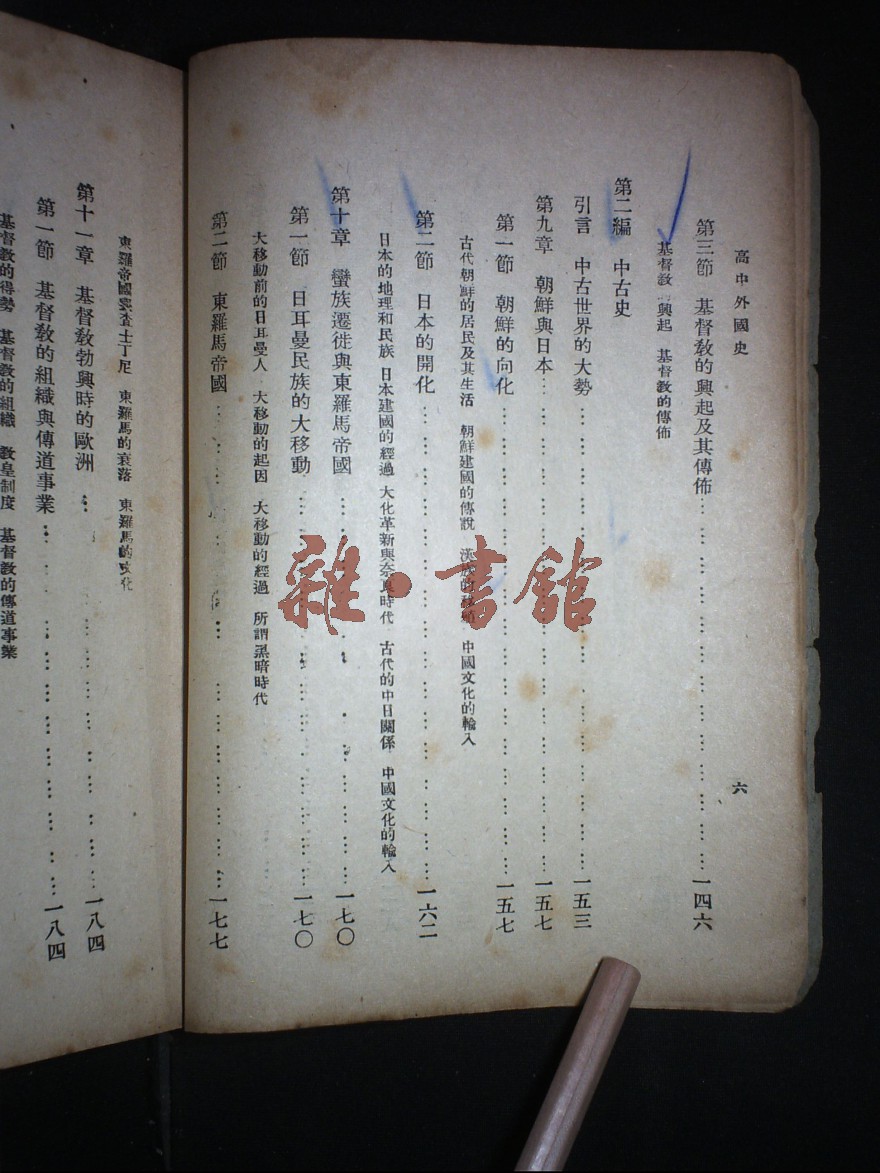 高中外國史
六
第三節 基督教的興起及其傳佈 一四六
基督教的興起 基督教的傳佈
第二編 中古史
引言 中古世界的大勢 一五三
第九章 朝鮮與日本 一五七
第一節 朝鮮的向化 一五七
古代朝鮮的居民及其生活 朝鮮建國的傳說 漢族的移殖 中國文化的輸入
第二節 日本的開化 一六二
日本的地理和民族 日本建國的經過 大化革新與奈良時代 古代的中日關係 中國文化的輸入
第十章 蠻族遷徙與東羅馬帝國 一七〇
第一節 日耳曼民族的大移動 一七〇
大移動前的日耳曼人 大移動的起因 大移動的經過 所謂黑暗時代
第二節 東羅馬帝國 一七七
東羅帝國與查士丁尼 東羅馬的衰落 東羅馬的文化
第十一章 基督教勃興時的歐洲 一八四
第一節 基督教的組織與傳道事業 一八四
基督教的得勢 基督教的組織 教皇制度 基督教的傳道事業
雜·書館